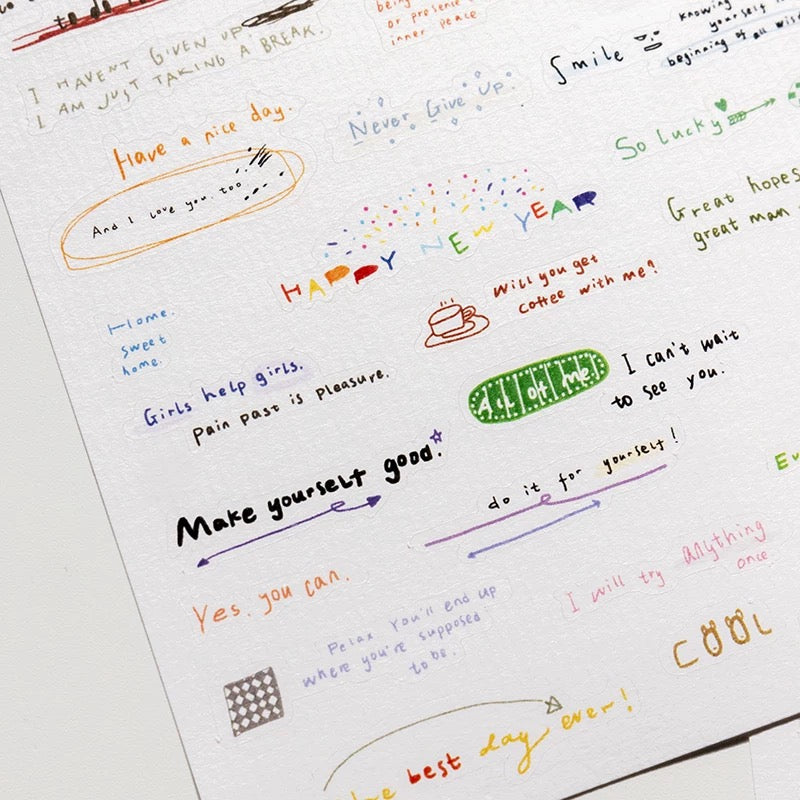 to do
being
or presence
inner peace
knowing
yourself is
beginning of all wis
I HAVEN'T GIVEN UP
I AM JUST TAKING A BREAK.
Smile
Never Give Up.
Have a nice day.
So Lucky
And I love you, too
HAPPY NEW YEAR
Great hopes
great man
Will you get
coffee with me?
Home.
sweet
home.
Girls help girls.
Pain past is pleasure.
All of me
I can't wait
to see you.
Make yourself good.
do it for yourself!
Ev
Yes, you can.
I will try anything
once
Relax. You'll end up
where you're supposed
to be.
COOL
best day ever!